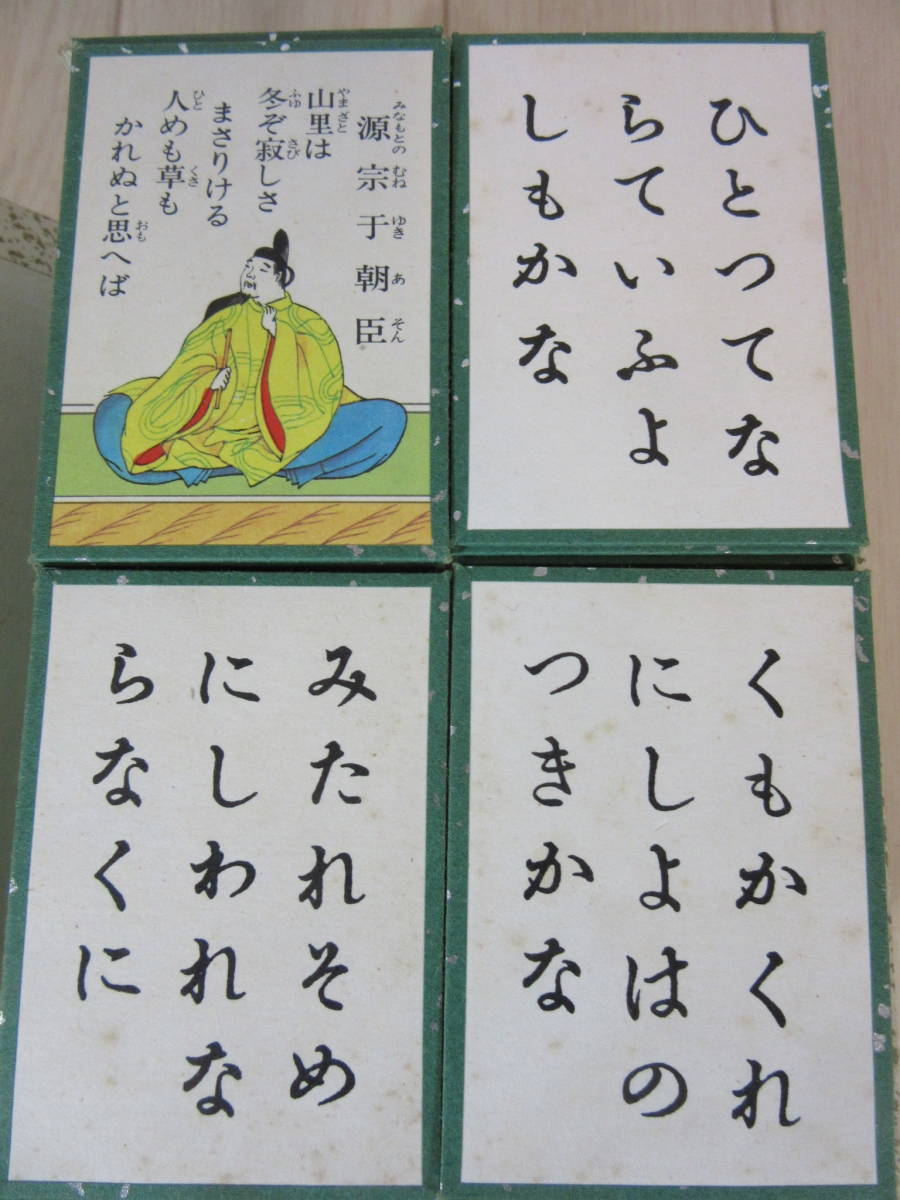 源宗于朝臣
みなもとの むね ゆき あ そん
山里は
やまざと
冬ぞ寂しさ
ふゆ さび
まさりける
人めも草も
ひと くさ
かれぬと思へば
おも
ひとつてな
らていふよ
しもかな
みたれそめ
にしわれな
らなくに
くもかくれ
にしよはの
つきかな